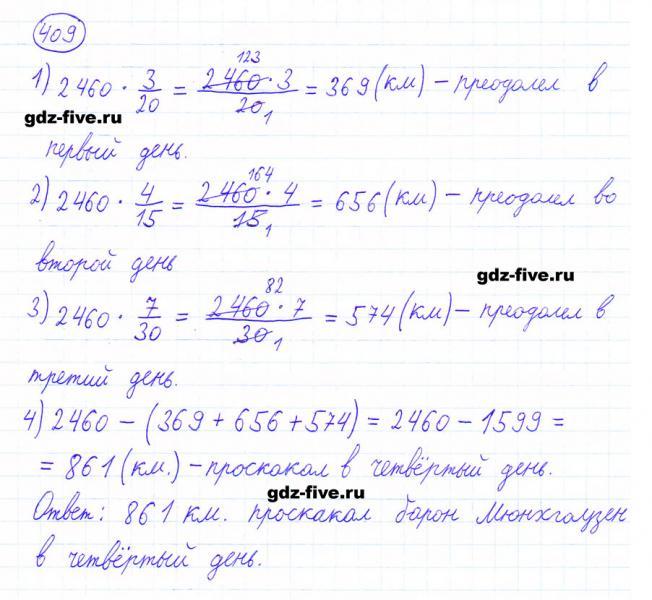 409
1) 2460 · 3/20 = 2460 · 3 / 20 = 369 (км) – преодолел в
123
1
gdz-five.ru
первый день.
2) 2460 · 4/15 = 2460 · 4 / 15 = 656 (км) – преодолел во
164
1
второй день
gdz-five.ru
3) 2460 · 7/30 = 2460 · 7 / 30 = 574 (км) – преодолел в
82
1
третий день.
4) 2460 – (369 + 656 + 574) = 2460 – 1599 =
= 861 (км.) – проскакал в четвёртый день.
gdz-five.ru
Ответ: 861 км. проскакал барон Мюнхгаузен
в четвёртый день.